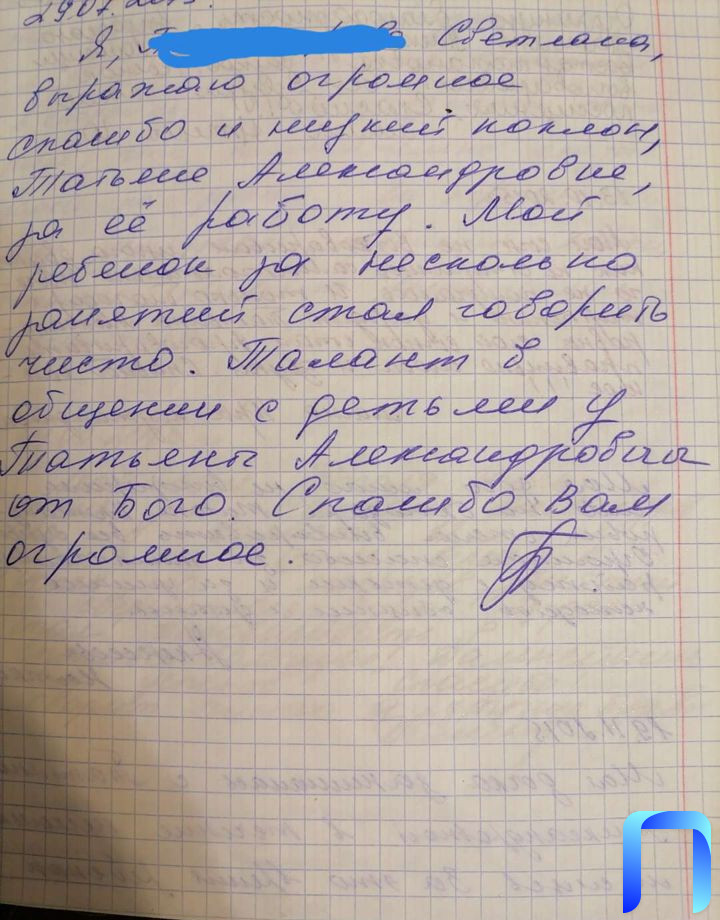 Я, Светлана,
выражаю огромное
спасибо и низкий поклон,
Татьяне Александровне,
за её работу. Мой
ребенок за несколько
занятий стал говорить
чисто. Талант в
общении с детьми у
Татьяны Александровны
от Бога. Спасибо Вам
огромное.